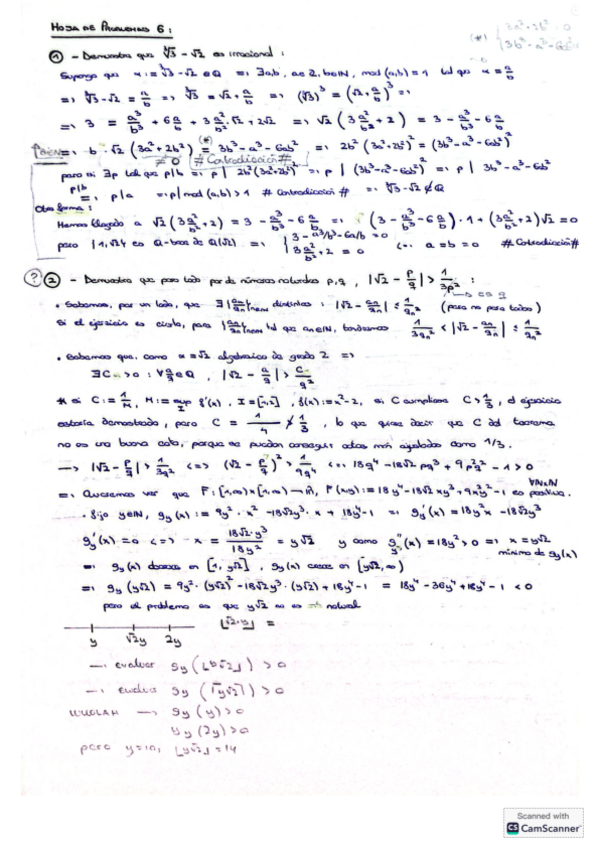 HOJA DE PROBLEMAS 6:
(*) { 3a²+2b² = 0
3b³-a³-6ab² = 0
① - Demuestra que ∛3 - √2 es irracional:
Supongo que α := ∛3 - √2 ∈ Q => ∃a,b, a∈Z, b∈N, mcd (a,b) = 1 tal que α = a/b
=> ∛3 - √2 = a/b => ∛3 = √2 + a/b => (∛3)³ = (√2 + a/b)³ =>
=> 3 = a³/b³ + 6 a/b + 3 a²/b² √2 + 2√2 => √2 (3 a²/b² + 2) = 3 - a³/b³ - 6 a/b
BIEN => b · √2 (3a² + 2b²) = 3b³ - a³ - 6ab² => 2b² (3a² + 2b²)² = (3b³ - a³ - 6ab²)²
≠ 0 (*) # Contradicción #
para si ∃p tal que p|b => p | 2b² (3a²+2b²)² => p | (3b³-a³-6ab²)² => p | 3b³-a³-6ab²
p|b => p|a => p | mcd(a,b) > 1 # Contradicción # => ∛3 - √2 ∉ Q
Otra forma:
Hemos llegado a √2 (3 a²/b² + 2) = 3 - a³/b³ - 6 a/b => (3 - a³/b³ - 6 a/b) · 1 + (3 a²/b² + 2) √2 = 0
pero {1, √2} es Q-base de Q(√2) => { 3 - a³/b³ - 6a/b = 0
3 a²/b² + 2 = 0 <=> a = b = 0 # Contradicción #
? ② - Demuestra que para todo par de números naturales p, q, |√2 - p/q| > 1/3q² :
• Sabemos, por un lado, que ∃ {an/qn}n∈N distintos : |√2 - an/qn| ≤ 1/qn² (pero no para todos)
Si el ejercicio es cierto, para {an/qn} tal que an∈N, tendremos 1/3qn² < |√2 - an/qn| ≤ 1/qn²
• Sabemos que, como α = √2 algebraico de grado 2 =>
∃C > 0 : ∀ a/q ∈ Q , |√2 - a/q| > C/q²
* si C := 1/M, M := sup f'(x), I = [1,2], f(x) := x²-2, si C cumpliese C > 1/3, el ejercicio
estaría demostrado, pero C = 1/4 ≯ 1/3, lo que quiere decir que C del teorema
no es una buena cota, porque se pueden conseguir otras más ajustadas como 1/3.
→ |√2 - p/q| > 1/3q² <=> (√2 - p/q)² > 1/9q⁴ <=> 18q⁴ - 18√2 pq³ + 9p²q² - 1 > 0
=> Queremos ver que F: [1,∞) x [1,∞) → R, F(x,y) := 18y⁴ - 18√2 xy³ + 9x²y² - 1 es positiva.
• Fijo y∈N, gy(x) := 9y² · x² - 18√2y³ · x + 18y⁴ - 1 => gy'(x) = 18y²x - 18√2y³
gy'(x) = 0 <=> x = 18√2·y³/18y² = y√2 y como gy''(x) = 18y² > 0 => x = y√2 mínimo de gy(x)
=> gy(x) decrece en [1, y√2], gy(x) crece en [y√2, ∞)
=> gy(y√2) = 9y² · (y√2)² - 18√2y³ · (y√2) + 18y⁴ - 1 = 18y⁴ - 36y⁴ + 18y⁴ - 1 < 0
pero el problema es que y√2 no es natural
y √2y 2y ⌊√2·y⌋ =
→ evaluar gy(⌊y√2⌋) > 0
→ evaluar gy(⌈y√2⌉) > 0
WUOLAH → gy(y) > 0
gy(2y) > 0
para y = 10, ⌊y√2⌋ = 14
Scanned with
CS CamScanner